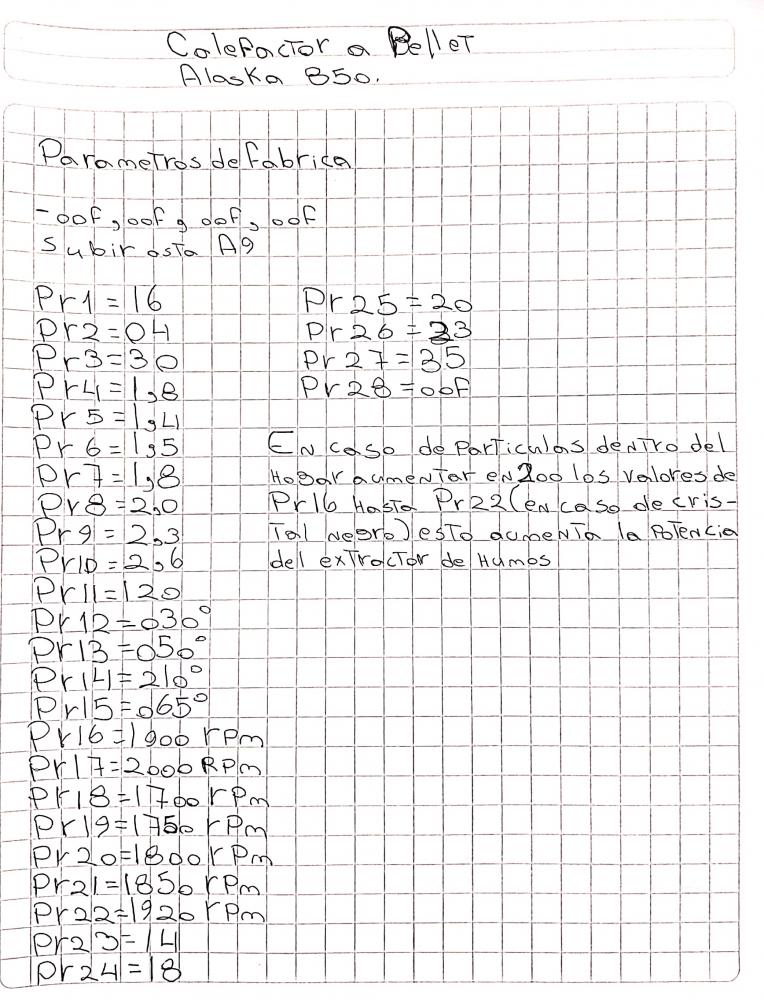 Calefactor a Pellet
Alaska 850.
Parametros de fabrica
-oof, oof, oof, oof
Subir osta A9
Pr1 = 16
Pr2 = 04
Pr3 = 30
Pr4 = 1,8
Pr5 = 1,4
Pr6 = 1,5
Pr7 = 1,8
Pr8 = 2,0
Pr9 = 2,3
Pr10 = 2,6
Pr11 = 120
Pr12 = 030°
Pr13 = 050°
Pr14 = 210°
Pr15 = 065°
Pr16 = 1900 rpm
Pr17 = 2000 Rpm
Pr18 = 1700 rpm
Pr19 = 1750 rpm
Pr20 = 1800 rpm
Pr21 = 1850 rpm
Pr22 = 1920 rpm
Pr23 = 14
Pr24 = 18
Pr25 = 20
Pr26 = 33
Pr27 = 35
Pr28 = oof
En caso de particulas dentro del
Hogar aumentar en 200 los valores de
Pr16 Hasta Pr22 (en caso de cris-
tal negro) esto aumenta la potencia
del extractor de Humos